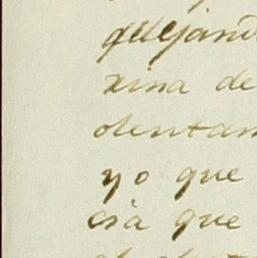 quejand
xina de
olentam
yo que
cia que